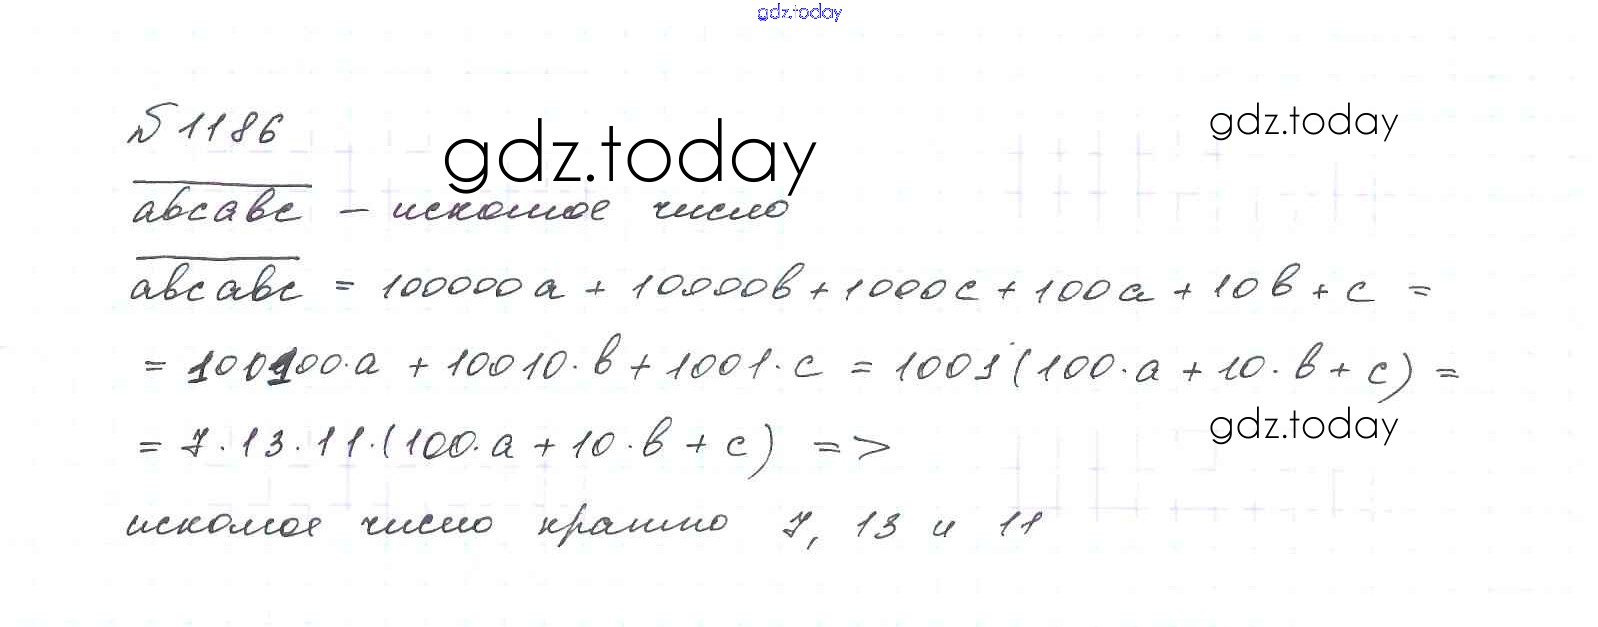 gdz.today
№ 1186
gdz.today
gdz.today
abcabc – искомое число
abcabc = 100000a + 10000b + 1000c + 100a + 10b + c =
= 100100·a + 10010·b + 1001·c = 1001(100·a + 10·b + c) =
= 7·13·11·(100·a + 10·b + c) =>
gdz.today
искомое число кратно 7, 13 и 11